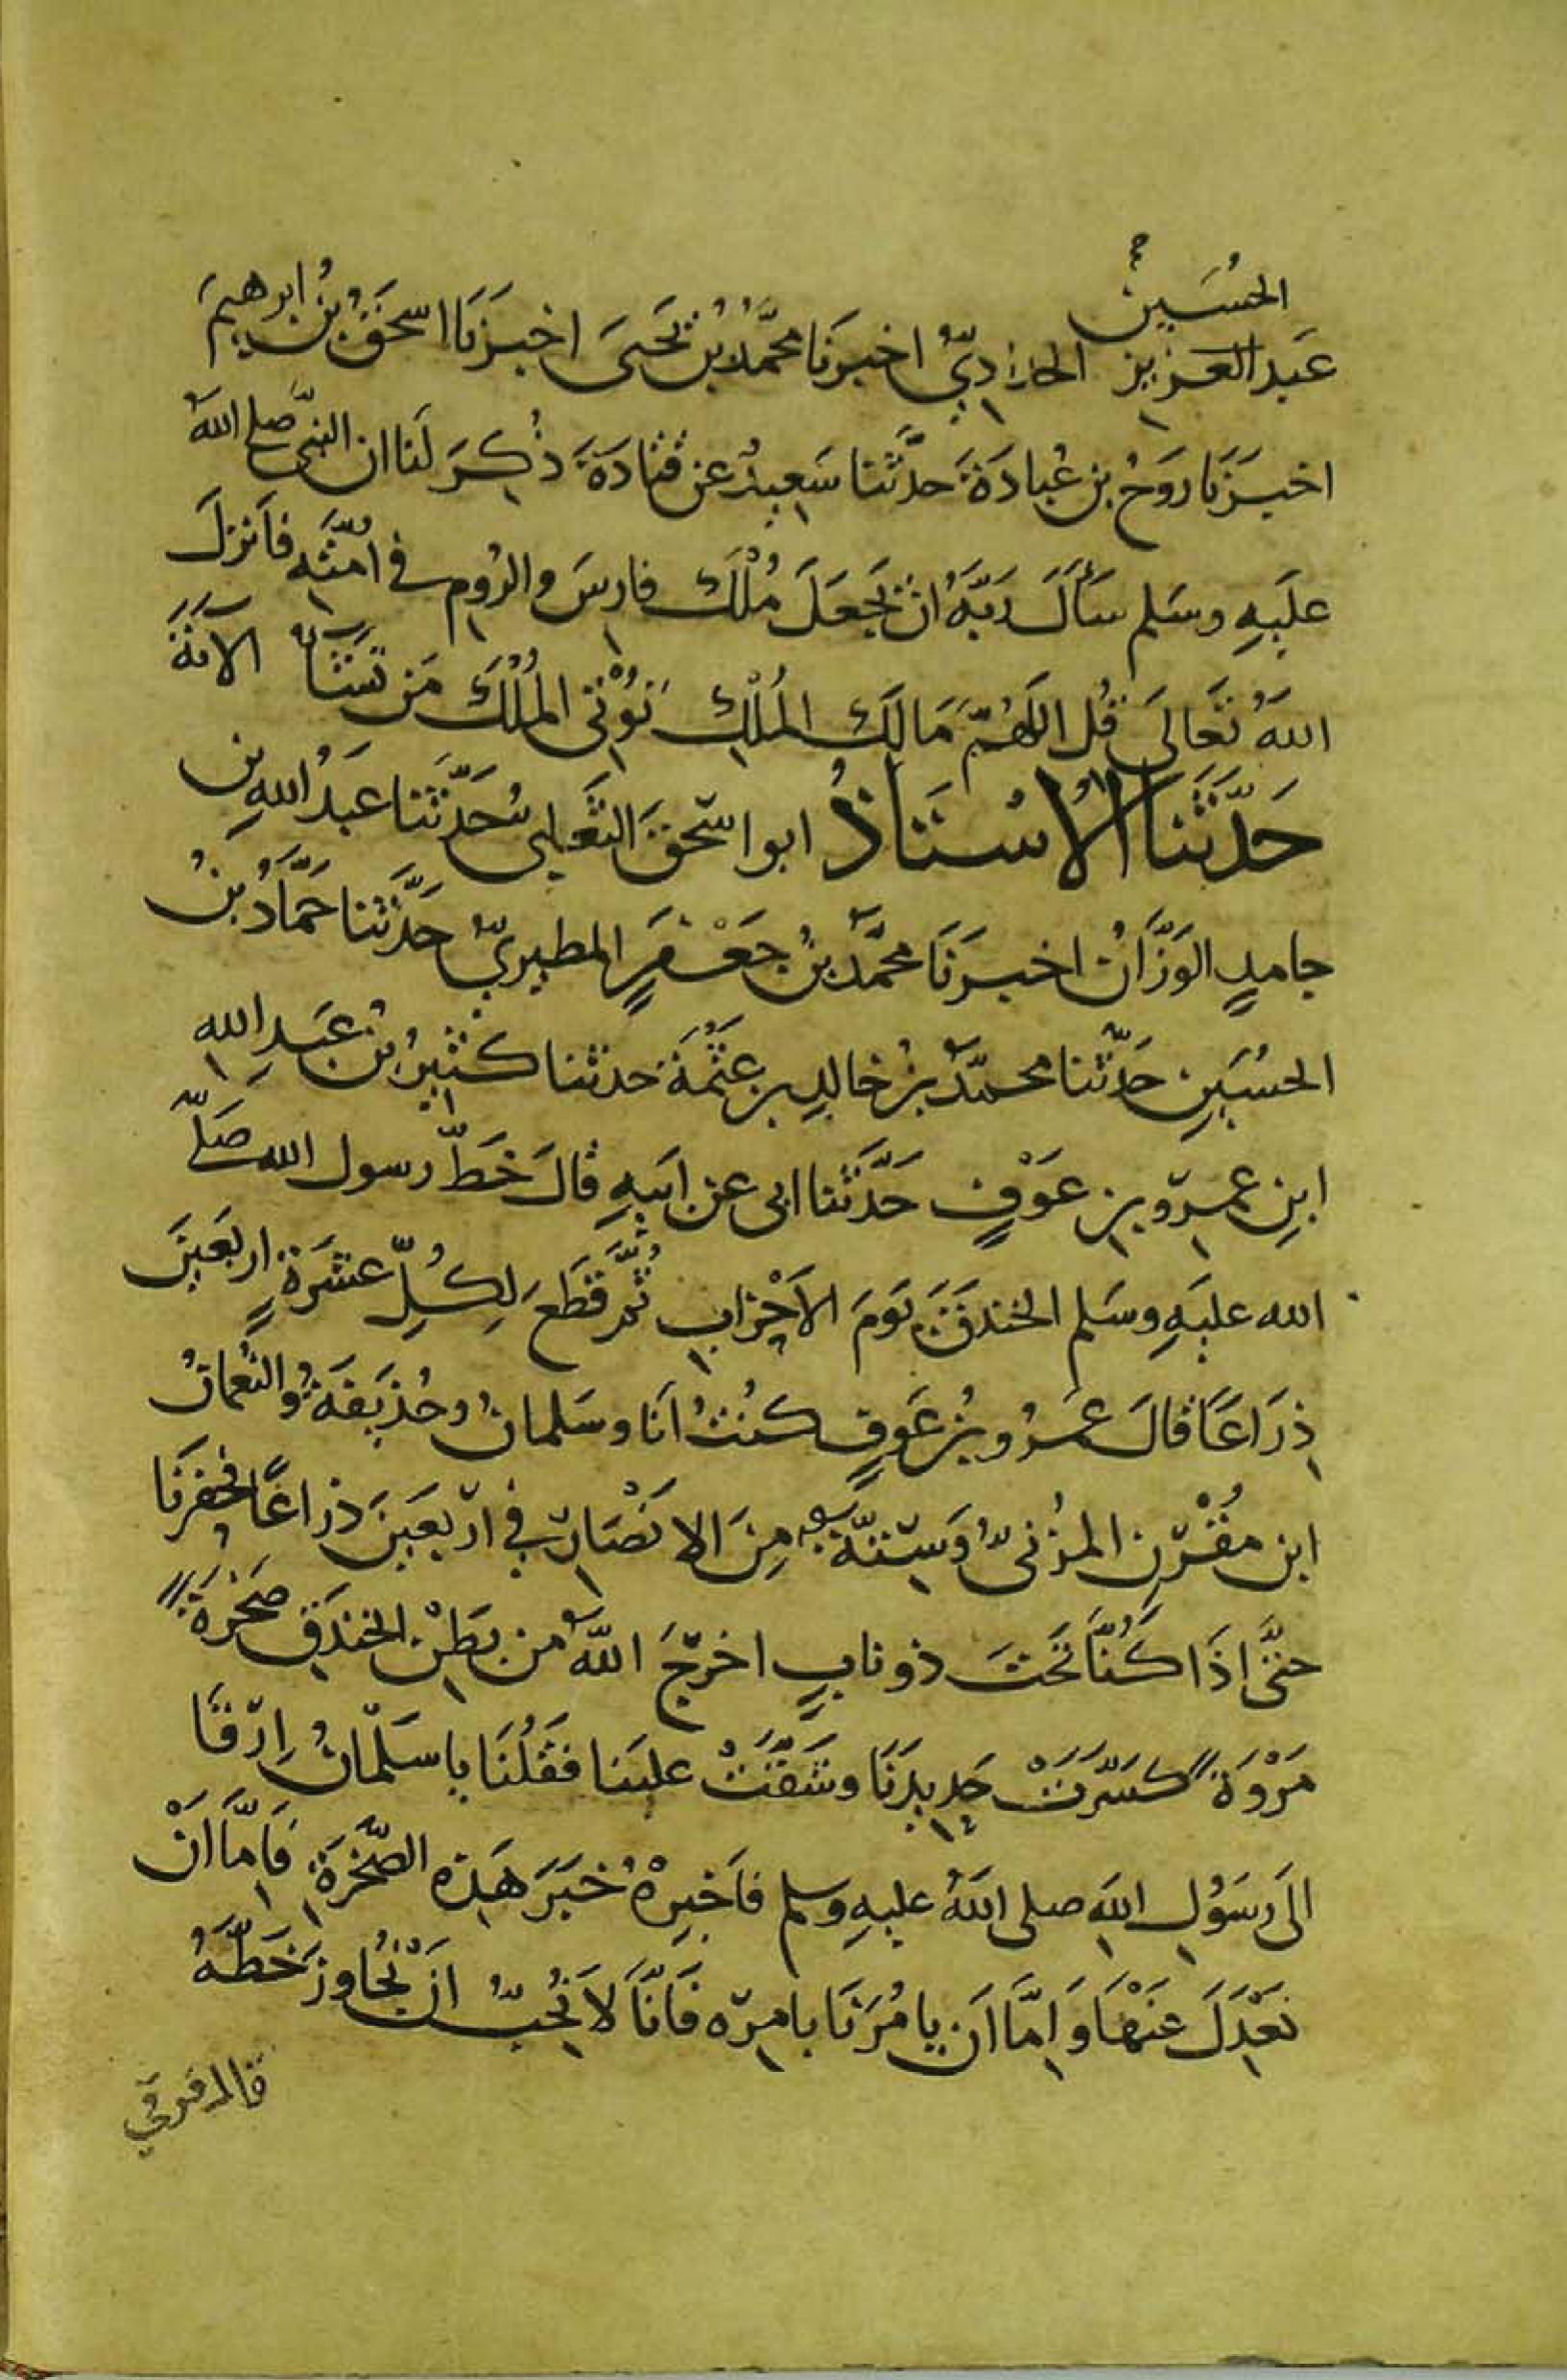 الحُسَين
عَبد العَزيز الحازِديّ اخبرَنا محمّدُ بنُ يَحيىَ اخبَرَنا اسحَقُ بنُ ابرهيمَ
اخبَرَنا رَوحُ بن عُبادَةَ حدَّثَنا سَعِيدٌ عن قتادَةَ ذُكِرَ لَنا ان النبىَّ صلى اللهُ
عليَهِ وسَلم سَأَلَ رَبَّهُ ان يَجعَلَ مُلْكَ فارِسَ والرُومِ في امَّتِهِ فاَنزلَ
اللهُ تَعَالىَ قُل اللهُمَّ مَالِكَ المُلْكِ تُؤْتى المُلْكَ مَن تَشَآءُ الآيَةَ
حَدَّثَنَا الاُسْتَاذُ ابو اسحَقَ الثَعلبى حَدَّثَنا عَبدُ اللهِ بن
حامدٍ الوَزَّانُ اخبرَنَا محمَّدُ بنُ جَعْفرٍ المطيريّ حَدَّثَنا حَمَّادُ بنُ
الحُسَينِ حَدّثنا محمّدُ بنُ خالدِ بن عَثْمَةَ حدثنا كَثِيرُ بنُ عَبدِ اللهِ
ابنِ عمروِ بن عَوْفٍ حَدَّثَنا ابى عن ابَيهِ قالَ خَطَّ رسول الله صَلّى
الله عليَهِ وسَلم الخندَقَ يَومَ الاَحْزابِ ثُمَّ قطَعَ لِكُلِّ عشَرَةٍ اربَعيَنَ
ذِرَاعًا قالَ عَمرُو بنُ عَوفٍ كنُتُ انَا وسَلمانُ وحُذيَفَةُ والنُعمانُ
ابن مُقْرّنِ المزُنىُّ وَسِتّةٌ مِنَ الانْصَارِ في اربَعيَنَ ذراعًا فحَفرنَا
حتَّى اِذَا كُنَّا تَحتَ ذو نابٍ اخرجَ اللهُ من بَطْنِ الخندَقِ صَخْرَةً
مَرْوَةً كسَّرَتْ حَدِيدَنَا وشَقَّتْ علينا فقَلُنَا يا سَلْمانُ اِرْقَا
الىَ رسَوُلِ اللهِ صلى اللهُ عليهِ وسلم فأَخبِرْهُ خَبَرَ هَذِهِ الصَّخْرَةِ فَاِمَّا اَنْ
نَعْدِلَ عَنْهَا وَ اِمَّا اَن يامُرَنَا بامرِه فَانَّا لاَ نُحِبُّ ان نُجَاوزَ خَطّهُ
قال فرقي